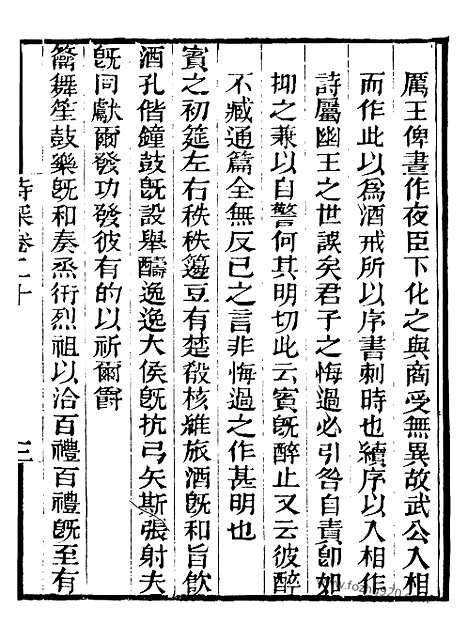 厲王俾晝作夜臣下化之與商受無異故武公入相
而作此以爲酒戒所以序書刺時也續序以入相作
詩屬幽王之世誤矣君子之悔過必引咎自責卽如
抑之兼以自警何其明切此云賓既醉止又云彼醉
不臧通篇全無反已之言非悔過之作甚明也
賓之初筵左右秩秩籩豆有楚殽核維旅酒既和旨飮
酒孔偕鐘鼓既設舉醻逸逸大侯既抗弓矢斯張射夫
既同獻爾發功發彼有的以祈爾爵
籥舞笙鼓樂既和奏烝衎烈祖以洽百禮百禮既至有
詩采卷二十
三
www.fozhu920